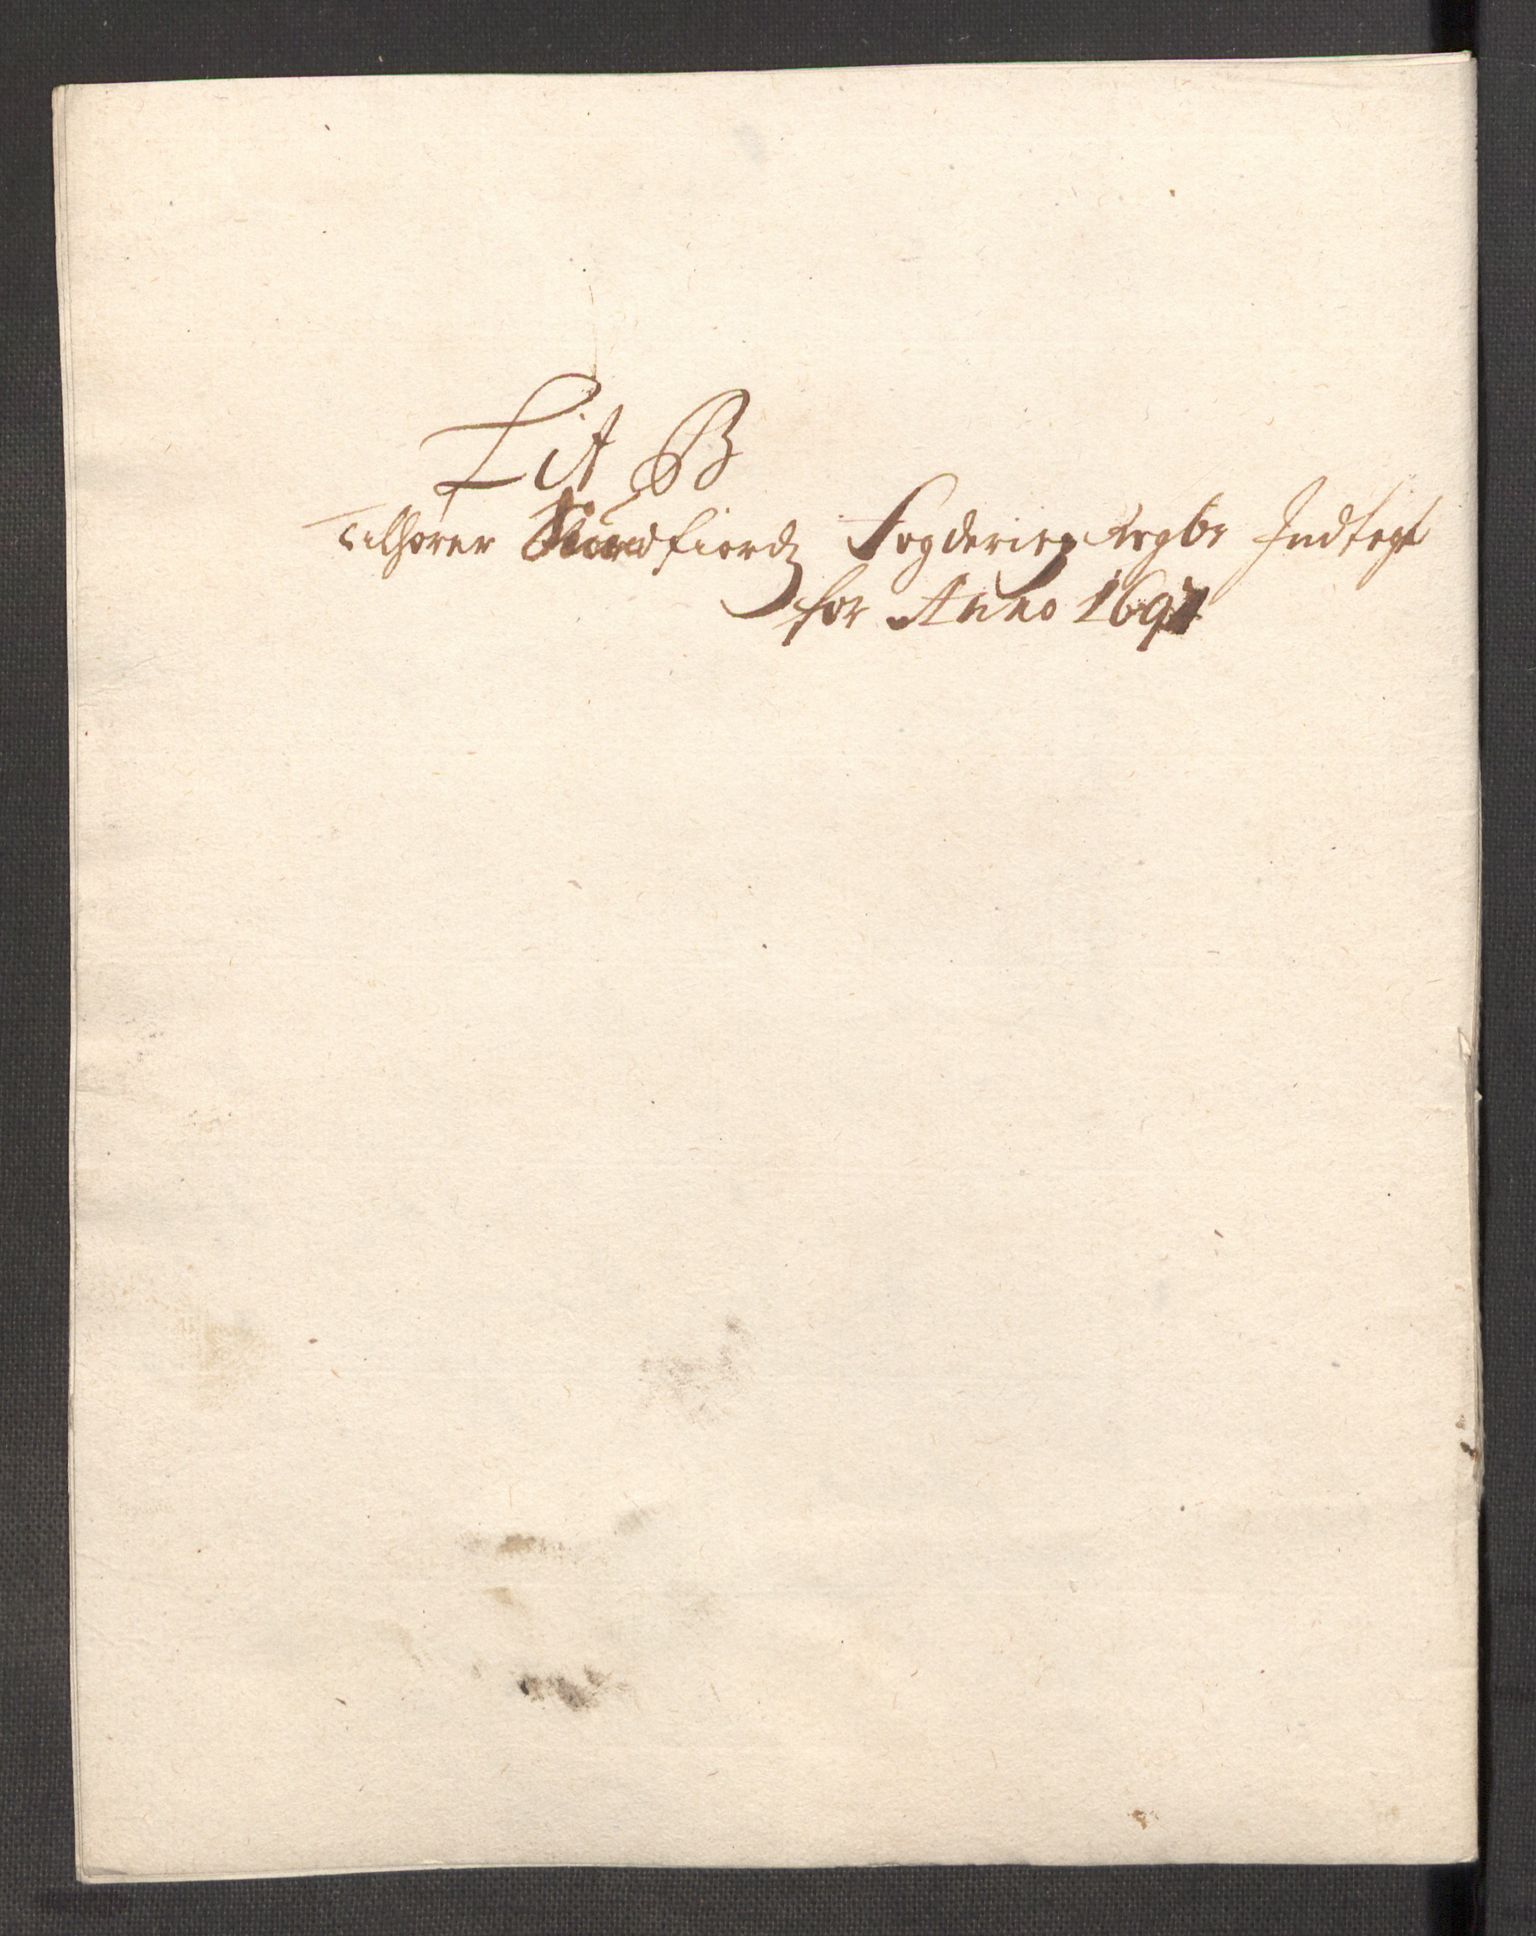 Lit B
Tilhører Nordfiordz Fogderies Regbr Indtegt
for Anno 1697